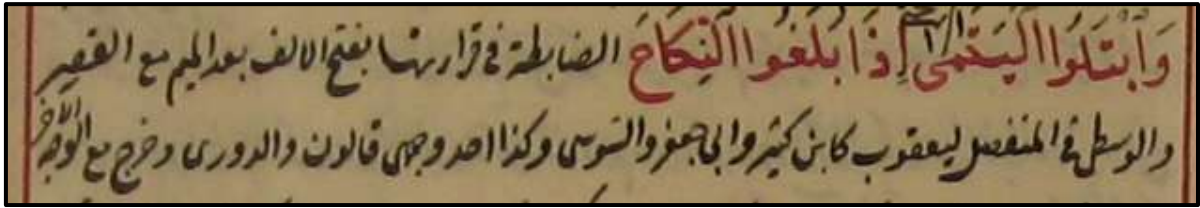 وَابْتَلُوا الْيَتٰمٰى إِذَا بَلَغُوا النِّكَاحَ الضابطة فى قرائتها بفتح الالف بعد الميم مع القصر
والوسط فى المنفصل ليعقوب كابن كثير وابى جعفر والسوسى وكذا احد وجهى قالون والدورى وخرج مع